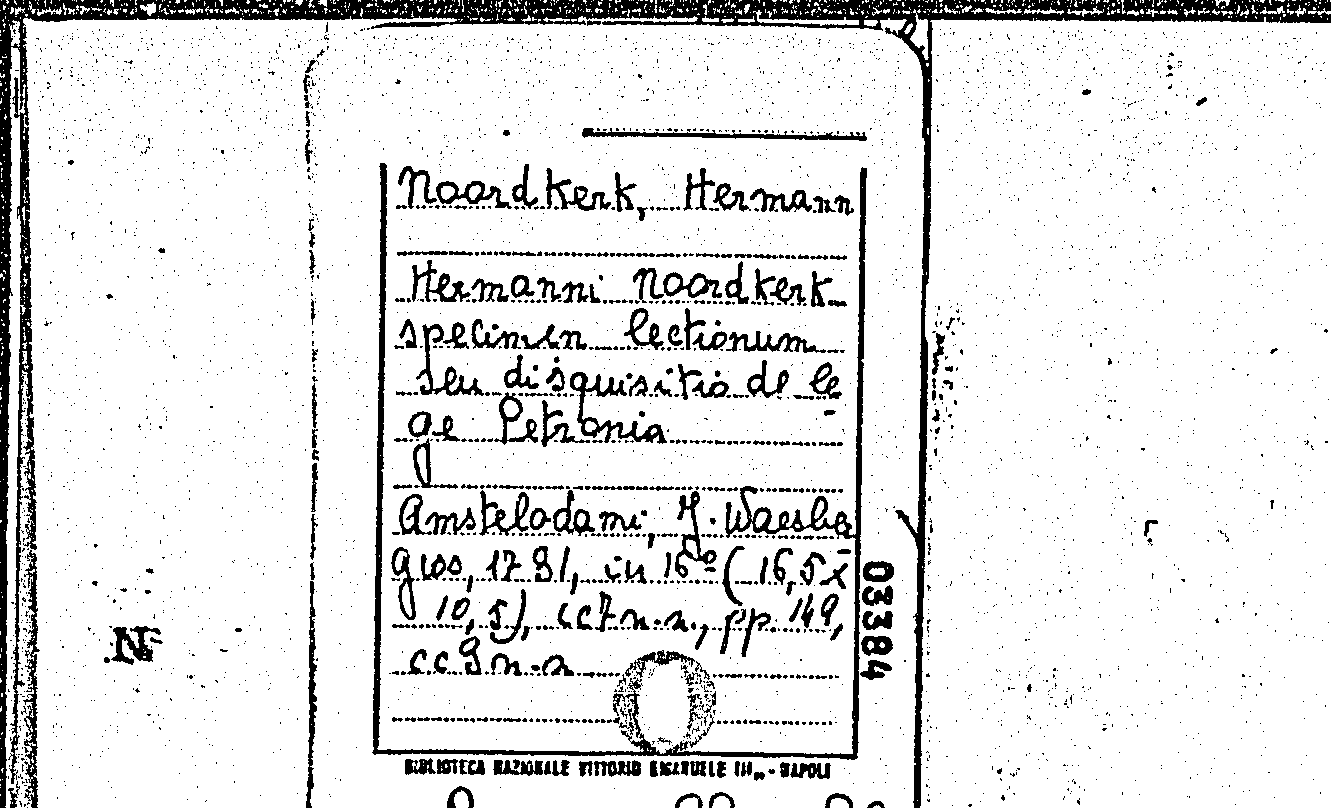 Noordkerk, Hermann
Hermanni Noordkerk
specimen lectionum
seu disquisitio de le
ge Petronia
Amsteladami, J. Waesber
gios, 1731, in 16º (16,5x
10,5), cc7 n.n., pp. 149,
cc9 n.n
03384
N
BIBLIOTECA NAZIONALE VITTORIO EMANUELE III - NAPOLI